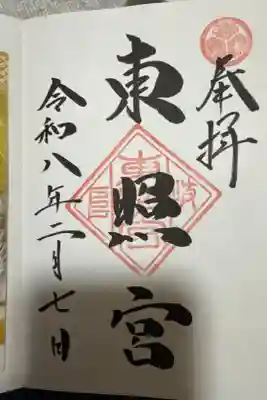 奉拝
東照宮
令和八年二月七日